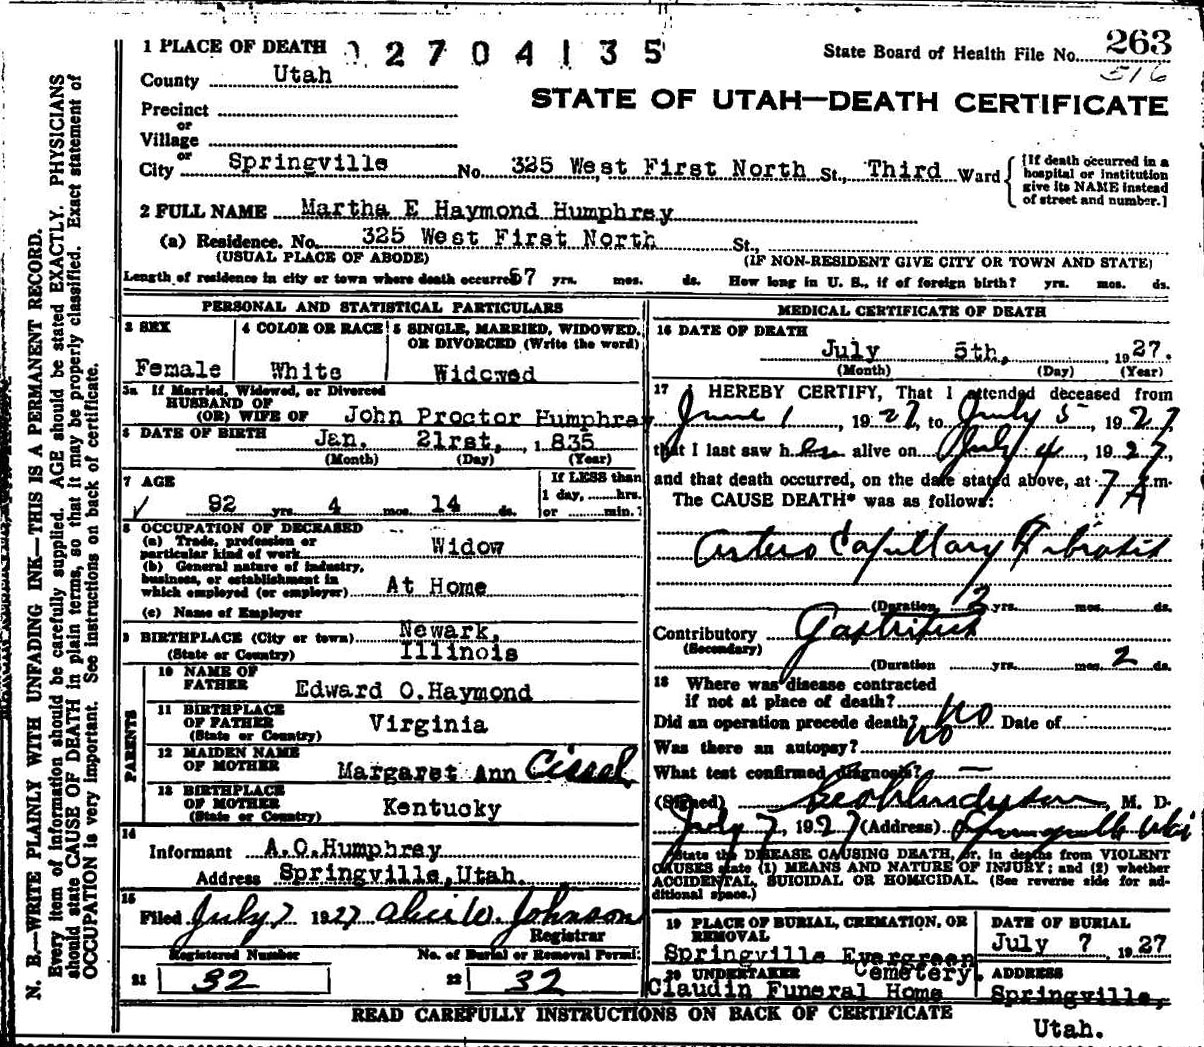 N. B.—WRITE PLAINLY WITH UNFADING INK—THIS IS A PERMANENT RECORD.
Every item of information should be carefully supplied. AGE should be stated EXACTLY. PHYSICIANS
should state CAUSE OF DEATH in plain terms, so that it may be properly classified. Exact statement of
OCCUPATION is very important. See instructions on back of certificate.
1 PLACE OF DEATH 02704135
State Board of Health File No. 263
516
County Utah
STATE OF UTAH—DEATH CERTIFICATE
Precinct
or
Village
or
City Springville No. 325 West First North St., Third Ward
[If death occurred in a
hospital or institution
give its NAME instead
of street and number.]
2 FULL NAME Martha E Haymond Humphrey
(a) Residence. No. 325 West First North St.,
(USUAL PLACE OF ABODE) (IF NON-RESIDENT GIVE CITY OR TOWN AND STATE)
Length of residence in city or town where death occurred 57 yrs. mos. ds. How long in U. S., if of foreign birth? yrs. mos. ds.
PERSONAL AND STATISTICAL PARTICULARS
3 SEX
Female
4 COLOR OR RACE
White
5 SINGLE, MARRIED, WIDOWED,
OR DIVORCED (Write the word)
Widowed
3a If Married, Widowed, or Divorced
HUSBAND OF
(OR) WIFE OF John Proctor Humphrey
6 DATE OF BIRTH Jan. 21rst, 1835
(Month) (Day) (Year)
7 AGE
92 yrs. 4 mos. 14 ds.
If LESS than
1 day, hrs.
or min.?
8 OCCUPATION OF DECEASED
(a) Trade, profession or
particular kind of work Widow
(b) General nature of industry,
business, or establishment in
which employed (or employer) At Home
(c) Name of Employer
9 BIRTHPLACE (City or town) Newark,
(State or Country) Illinois
PARENTS
10 NAME OF
FATHER Edward O.Haymond
11 BIRTHPLACE
OF FATHER Virginia
(State or Country)
12 MAIDEN NAME
OF MOTHER Margaret Ann Cissel
13 BIRTHPLACE
OF MOTHER Kentucky
(State or Country)
14
Informant A.O.Humphrey
Address Springville,Utah.
15
Filed July 7 1927 Alice W. Johnson
Registrar
Registered Number No. of Burial or Removal Permit
21 32 22 32
MEDICAL CERTIFICATE OF DEATH
16 DATE OF DEATH
July 5th, 1927.
(Month) (Day) (Year)
17 I HEREBY CERTIFY, That I attended deceased from
June 1, 1927, to July 5, 1927
that I last saw her alive on July 4, 1927,
and that death occurred, on the date stated above, at 7 A m.
The CAUSE DEATH* was as follows:
Artero Capillary Fibrosis
(Duration 12 yrs. mos. ds.
Contributory Gastritis
(Secondary)
(Duration yrs. mos. 2 ds.
18 Where was disease contracted
if not at place of death?
Did an operation precede death? No Date of
Was there an autopsy? No
What test confirmed diagnosis? —
(Signed) Geo Anderson, M. D.
July 7, 1927 (Address) Springville Utah
*State the DISEASE CAUSING DEATH, or, in deaths from VIOLENT
CAUSES state (1) MEANS AND NATURE OF INJURY; and (2) whether
ACCIDENTAL, SUICIDAL OR HOMICIDAL. (See reverse side for ad-
ditional space.)
19 PLACE OF BURIAL, CREMATION, OR
REMOVAL
Springville Evergreen
Cemetery.
DATE OF BURIAL
July 7 1927
20 UNDERTAKER
Claudin Funeral Home
ADDRESS
Springville,
Utah.
READ CAREFULLY INSTRUCTIONS ON BACK OF CERTIFICATE